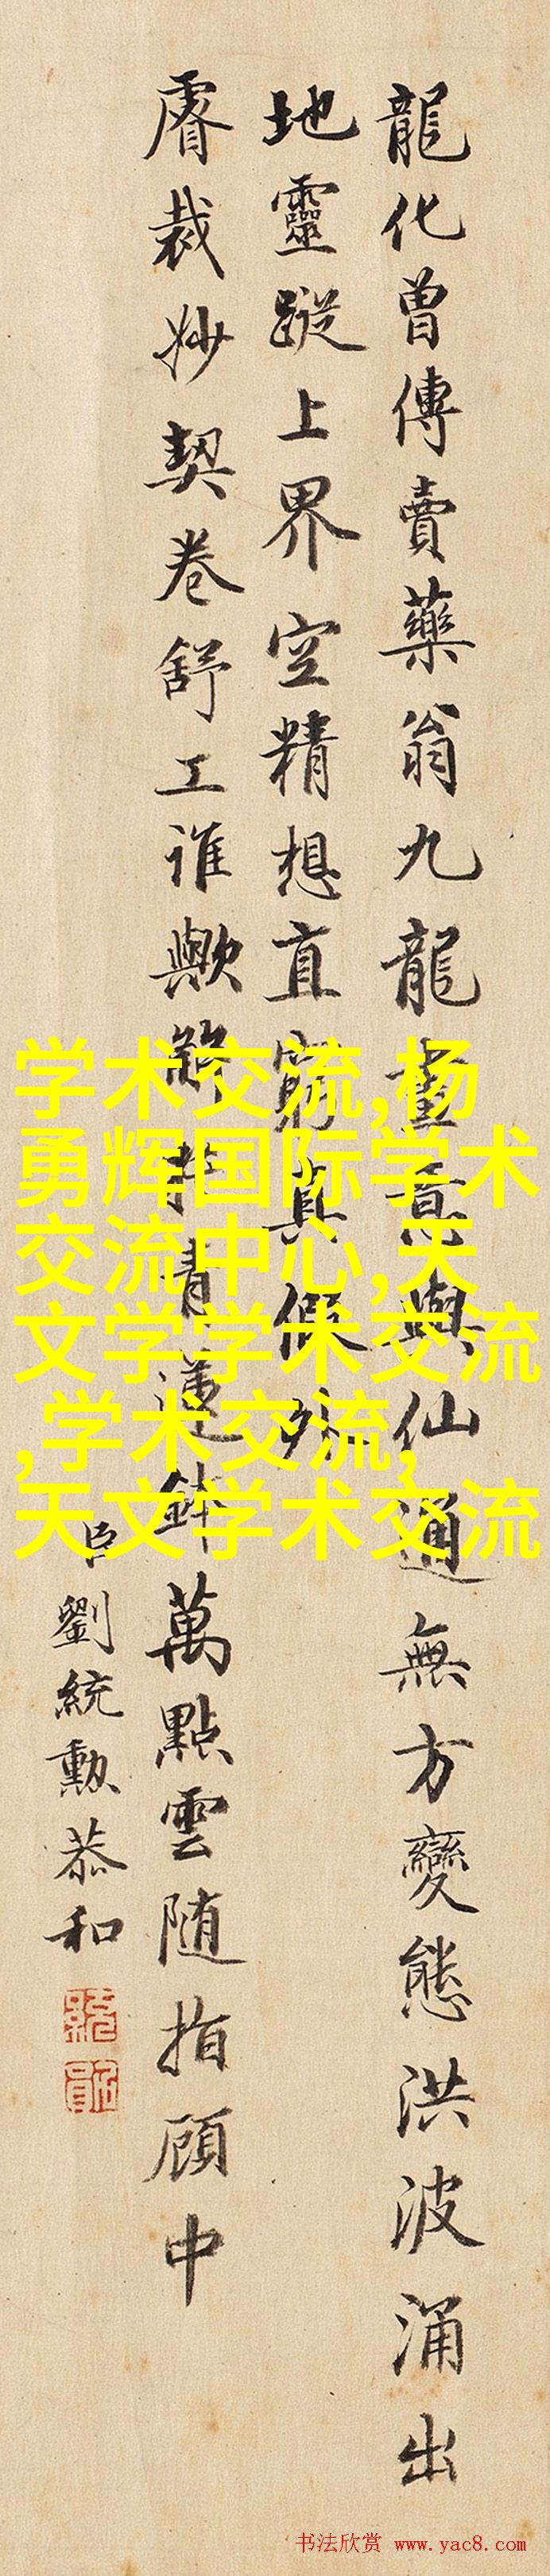 龍化曾傳賣藥翁九龍畫意與仙通無方變態洪波涌出
地靈蹤上界空精想直窮真假外
睿裁妙契卷舒工誰歟解把青蓮鉢萬點雲随指顧中
臣劉統勳恭和
学术交流,杨
勇辉国际学术
交流中心,天
文学学术交流
,学术交流,
天文学术交流
书法欣赏 www.yac8.com